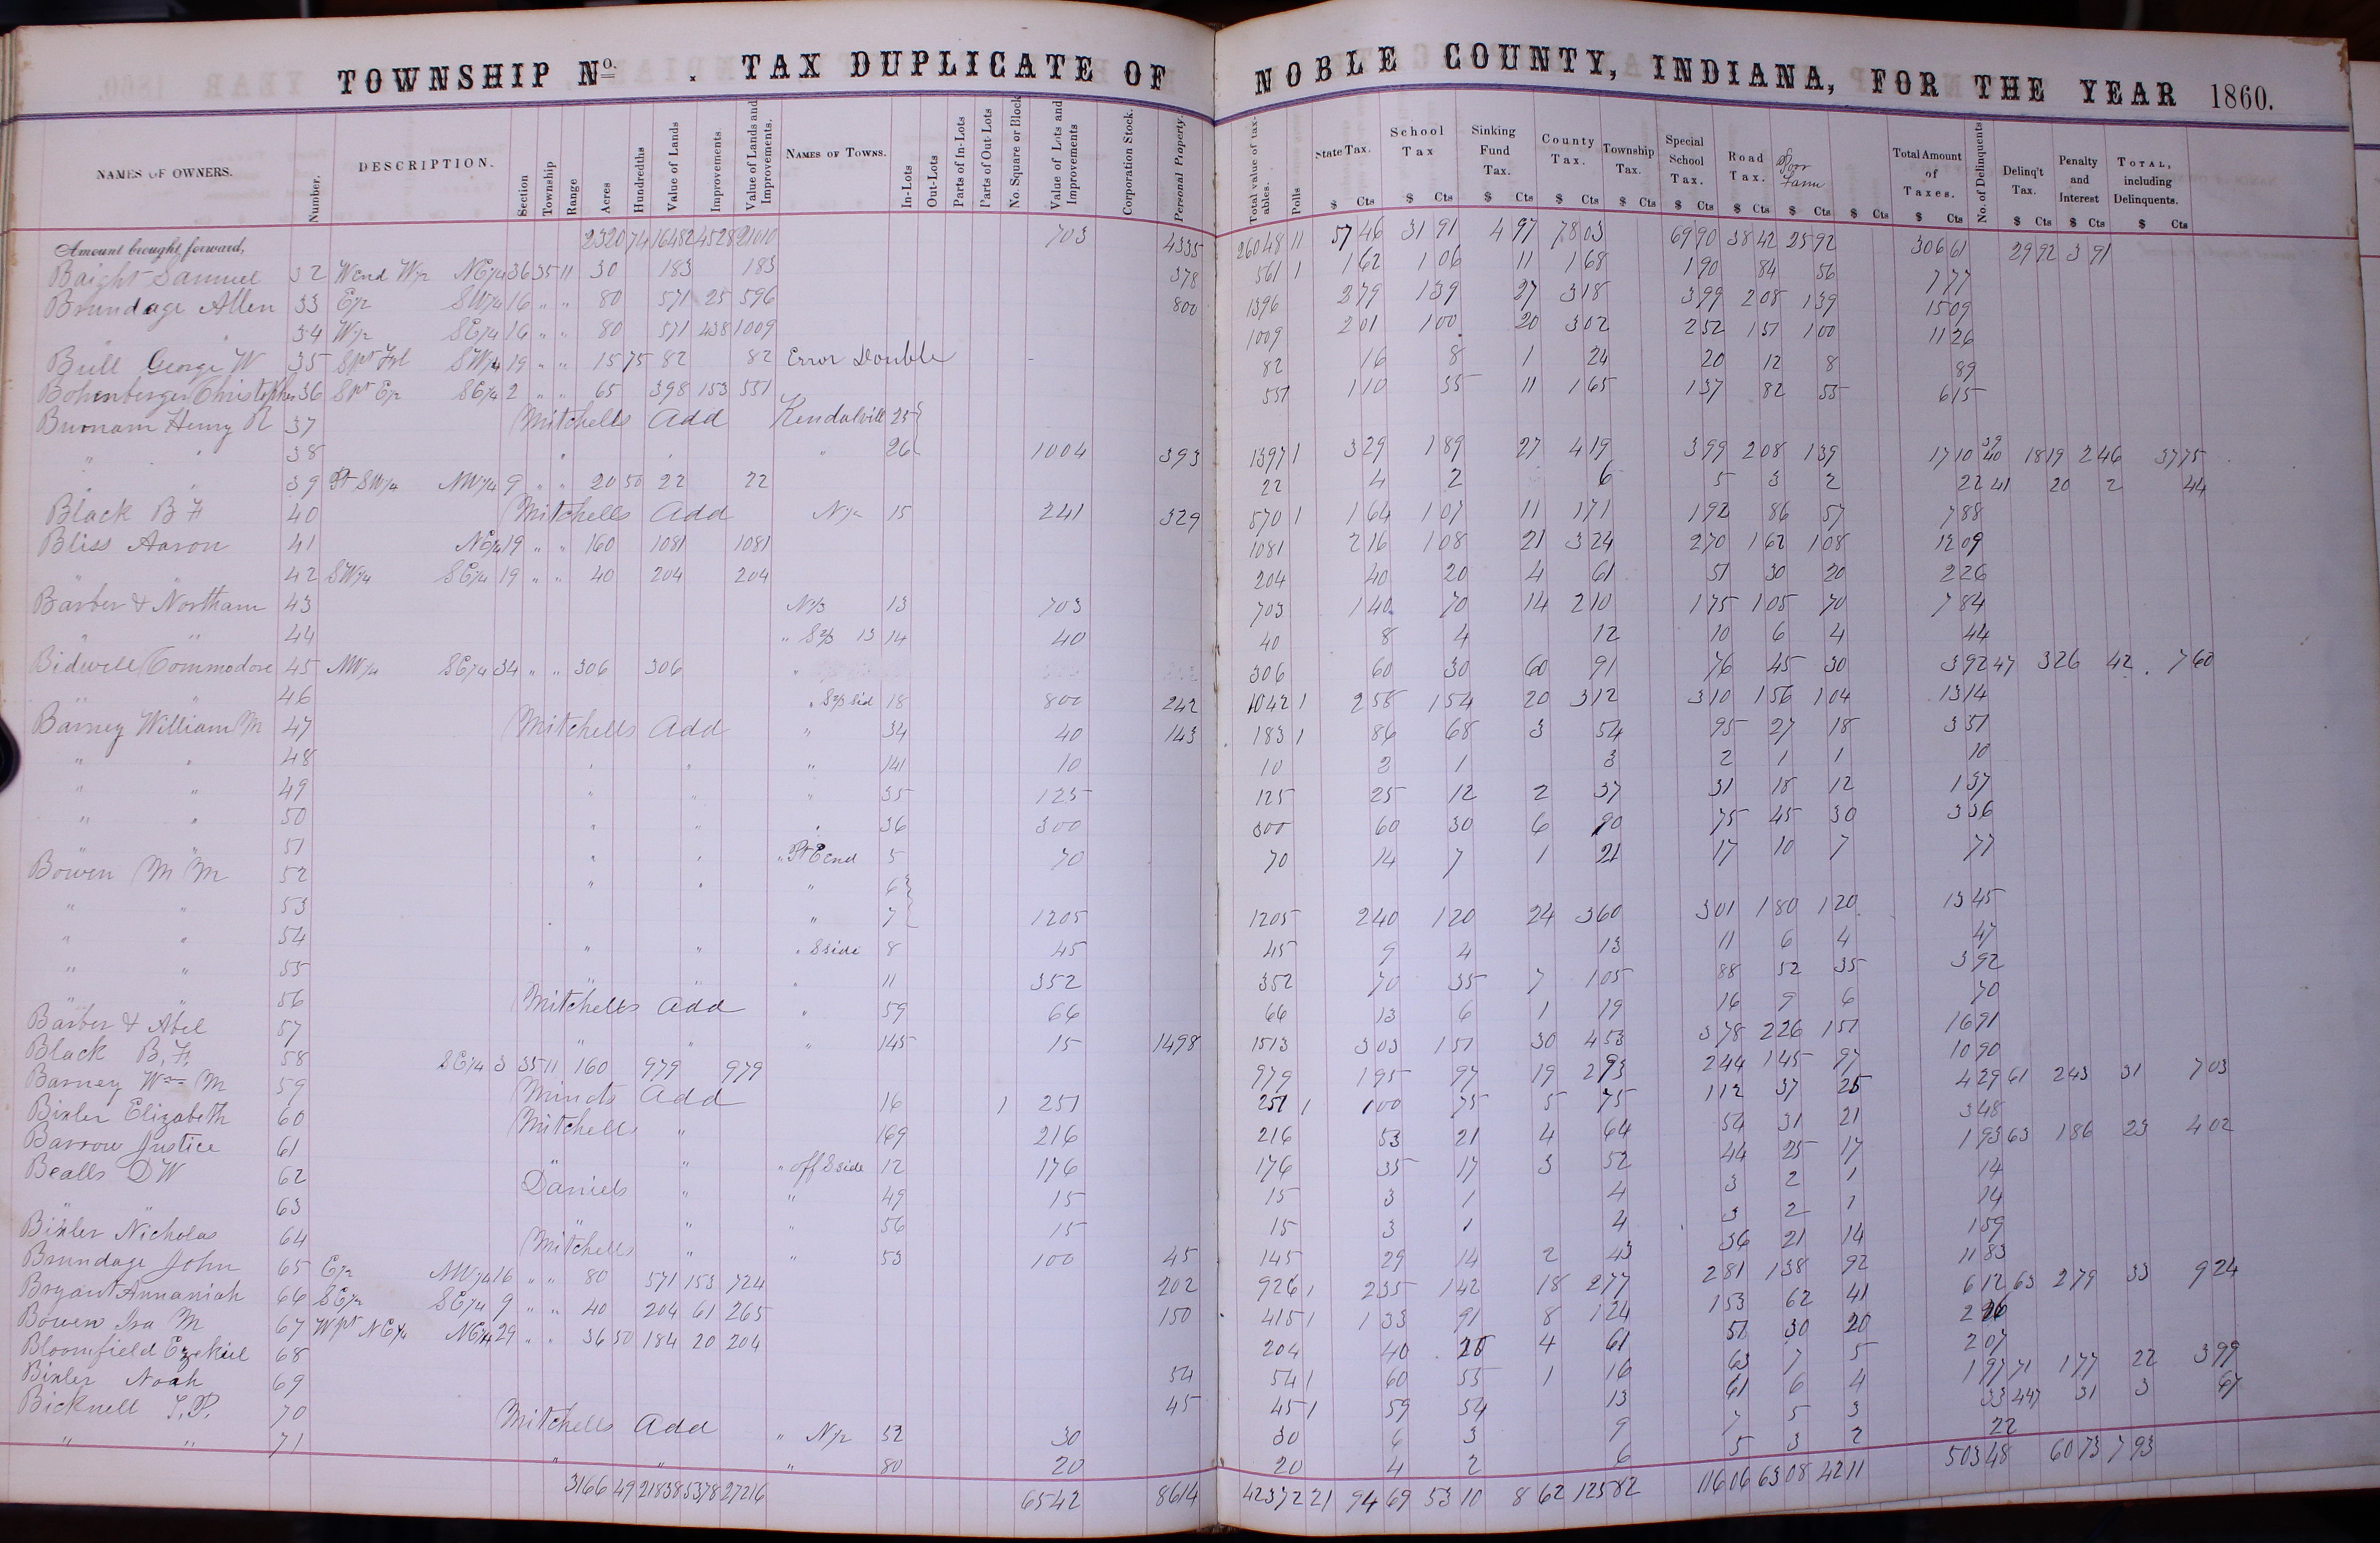 TOWNSHIP No. . TAX DUPLICATE OF NOBLE COUNTY, INDIANA, FOR THE YEAR 1860.
NAMES OF OWNERS. Number. DESCRIPTION. Section Township Range Acres Hundredths Value of Lands Improvements Value of Lands and Improvements. NAMES OF TOWNS. In-Lots Out-Lots Parts of In-Lots Parts of Out Lots No. Square or Block Value of Lots and Improvements Corporation Stock. Personal Property. Total value of taxables. Polls State Tax. School Tax Sinking Fund Tax. County Tax. Township Tax. Special School Tax. Road Tax. Poor Farm Total Amount of Taxes. No. of Delinquents Delinq't Tax. Penalty and Interest TOTAL, including Delinquents.
$ Cts $ Cts $ Cts $ Cts $ Cts $ Cts $ Cts $ Cts $ Cts $ Cts $ Cts $ Cts $ Cts
Amount brought forward, 2320 74 16482 4528 21010 703 4335 26048 11 57 46 31 91 4 97 78 03 69 90 38 42 25 92 306 61 29 92 3 91
Baight Samuel 32 W end W1/2 NE1/4 36 35 11 30 183 183 378 561 1 1 62 1 06 11 1 68 1 90 84 56 7 77
Brundage Allen 33 E1/2 SW1/4 16 " " 80 571 25 596 800 1396 2 79 1 39 27 3 18 3 99 2 08 1 39 15 09
34 W1/2 SE1/4 16 " " 80 571 438 1009 1009 2 01 1 00 20 3 02 2 52 1 51 1 00 11 26
Bull George W 35 Spt Frl SW1/4 19 " " 15 75 82 82 Error Double 82 16 8 1 24 20 12 8 89
Bohenberger Christopher 36 Spt E1/2 SE1/4 2 " " 65 398 153 551 551 1 10 55 11 1 65 1 37 82 55 6 15
Burnam Henry R 37 Mitchells Add Kendalvill 25
" " 38 " " " 26 1004 393 1397 1 3 29 1 89 27 4 19 3 99 2 08 1 39 17 10 39 40 18 19 2 46 37 75
" " 39 Pt SW1/4 NW1/4 9 " " 20 50 22 22 22 4 2 6 5 3 2 22 41 20 2 44
Black B F 40 Mitchells Add N1/2 15 241 329 570 1 1 64 1 07 11 1 71 1 92 86 57 7 88
Bliss Aaron 41 NE1/4 19 " " 160 1081 1081 1081 2 16 1 08 21 3 24 2 70 1 62 1 08 12 09
42 SW1/4 SE1/4 19 " " 40 204 204 204 40 20 4 61 51 30 20 2 26
Barber & Northam 43 N1/3 13 703 703 1 40 70 14 2 10 1 75 1 05 70 7 84
" " 44 " S2/3 13 14 40 40 8 4 12 10 6 4 44
Bidwell Commodore 45 NW1/4 SE1/4 34 " " 306 306 " 306 60 30 60 91 76 45 30 3 92 47 3 26 42 7 60
" " 46 " S2/3 sid 18 800 242 1042 1 2 58 1 54 20 3 12 3 10 1 56 1 04 13 14
Barney William M 47 Mitchells Add " 34 40 143 183 1 86 68 3 54 95 27 18 3 51
" " 48 " " " 141 10 10 2 1 3 2 1 1 10
" " 49 " " " 35 125 125 25 12 2 37 31 18 12 1 37
" " 50 " " " 36 300 300 60 30 6 90 75 45 30 3 36
" " 51 " " " Pt E end 5 70 70 14 7 1 21 17 10 7 77
Bowen M M 52 " " " 6
" " 53 " " 7 1205 1205 2 40 1 20 24 3 60 3 01 1 80 1 20 13 45
" " 54 " " " S side 8 45 45 9 4 13 11 6 4 47
" " 55 " " " 11 352 352 70 35 7 1 05 88 52 35 3 92
56 Mitchells Add " 59 66 66 13 6 1 19 16 9 6 70
Barber & Abel 57 " " " 145 15 1498 1513 3 03 1 51 30 4 53 3 78 2 26 1 51 16 91
Black B. F. 58 SE1/4 3 35 11 160 979 979 979 1 95 97 19 2 93 2 44 1 45 97 10 90
Barney Wm M 59 Minots Add 16 1 251 251 1 1 00 75 5 75 1 12 37 25 4 29 61 2 43 31 7 03
Bixler Elizabeth 60 Mitchells " 169 216 216 53 21 4 64 54 31 21 3 48
Barrow Justice 61 " " " off S side 12 176 176 35 17 3 52 44 25 17 1 93 63 1 86 23 4 02
Bealls D W 62 Daniels " " 49 15 15 3 1 4 3 2 1 14
" " 63 " " " 56 15 15 3 1 4 3 2 1 14
Bixler Nicholas 64 Mitchells " " 53 100 45 145 29 14 2 43 36 21 14 1 59
Brundage John 65 E1/2 NW1/4 16 " " 80 571 153 724 202 926 1 2 35 1 42 18 2 77 2 81 1 38 92 11 83
Bryant Annaniah 66 SE1/2 SE1/4 9 " " 40 204 61 265 150 415 1 1 33 91 8 1 24 1 53 62 41 6 12 63 2 79 33 9 24
Bowen Ira M 67 Wpt NE1/4 NE1/4 29 " " 36 50 184 20 204 204 40 20 4 61 51 30 20
Bloomfield Ezekiel 68 54 54 1 60 55 1 16 63 7 5 2 07
Bixler Noah 69 45 45 1 59 54 13 61 6 4 1 97 71 1 77 22 3 99
Bicknell T. P. 70 Mitchells Add " N1/2 32 30 30 6 3 9 7 5 3 33 447 31 3 67
" " 71 " " " 80 20 20 4 2 6 5 3 2 22
3166 49 21838 5378 27216 6542 8614 42372 21 94 69 53 10 8 62 125 82 116 06 63 08 42 11 503 48 60 73 7 93